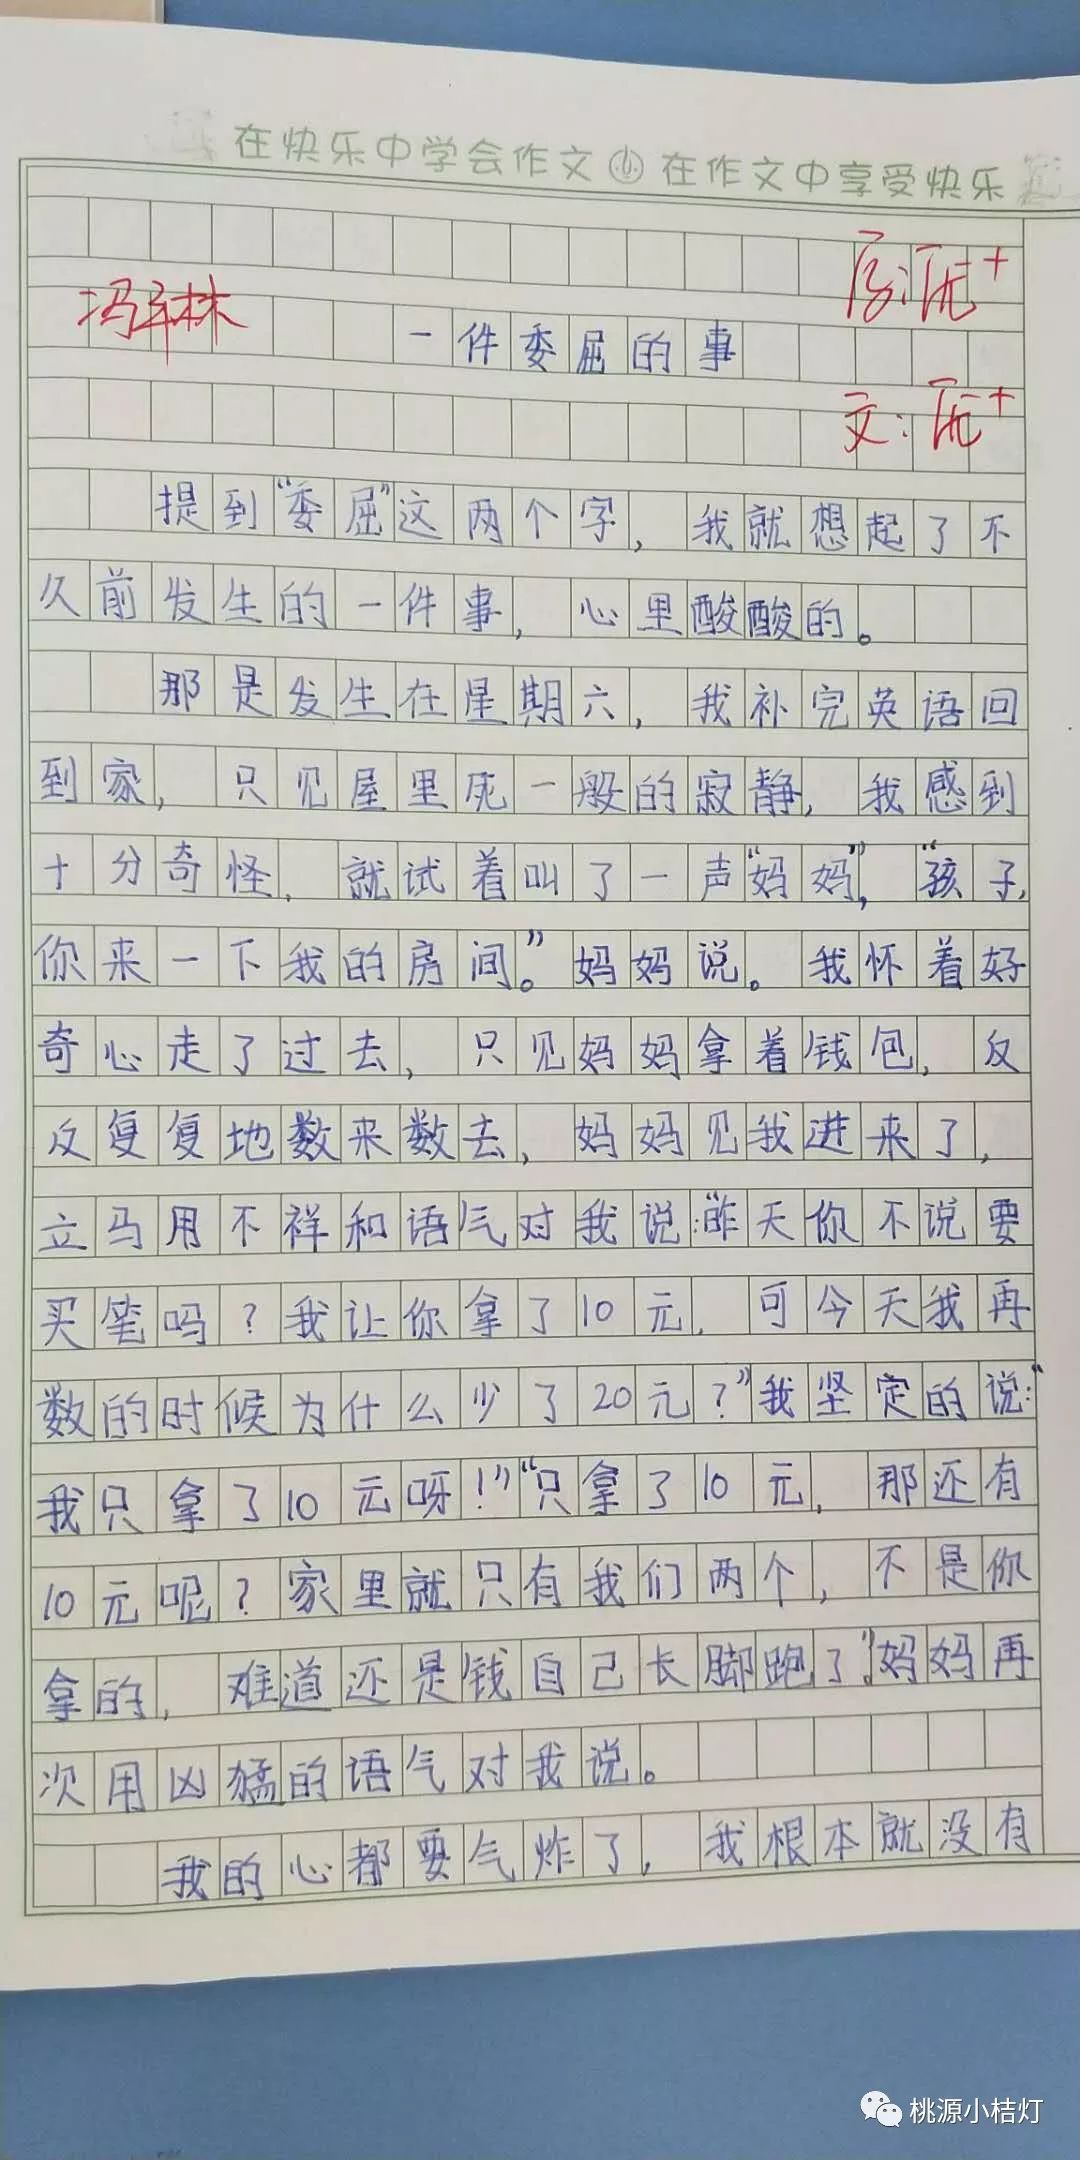 在快乐中学会作文 在作文中享受快乐
优+
一件委屈的事
文:优+
提到“委屈”这两个字，我就想起了不
久前发生的一件事，心里酸酸的。
那是发生在星期六，我补完英语回
到家，只见屋里死一般的寂静，我感到
十分奇怪，就试着叫了一声“妈妈”，“孩子，
你来一下我的房间。”妈妈说。我怀着好
奇心走了过去，只见妈妈拿着钱包，反
反复复地数来数去，妈妈见我进来了，
立马用不祥和语气对我说:“昨天你不说要
买笔吗？我让你拿了10元，可今天我再
数的时候为什么少了20元？”我坚定的说:“
我只拿了10元呀！”“只拿了10元，那还有
10元呢？家里就只有我们两个，不是你
拿的，难道还是钱自己长脚跑了”妈妈再
次用凶猛的语气对我说。
我的心都要气炸了，我根本就没有
桃源小桔灯